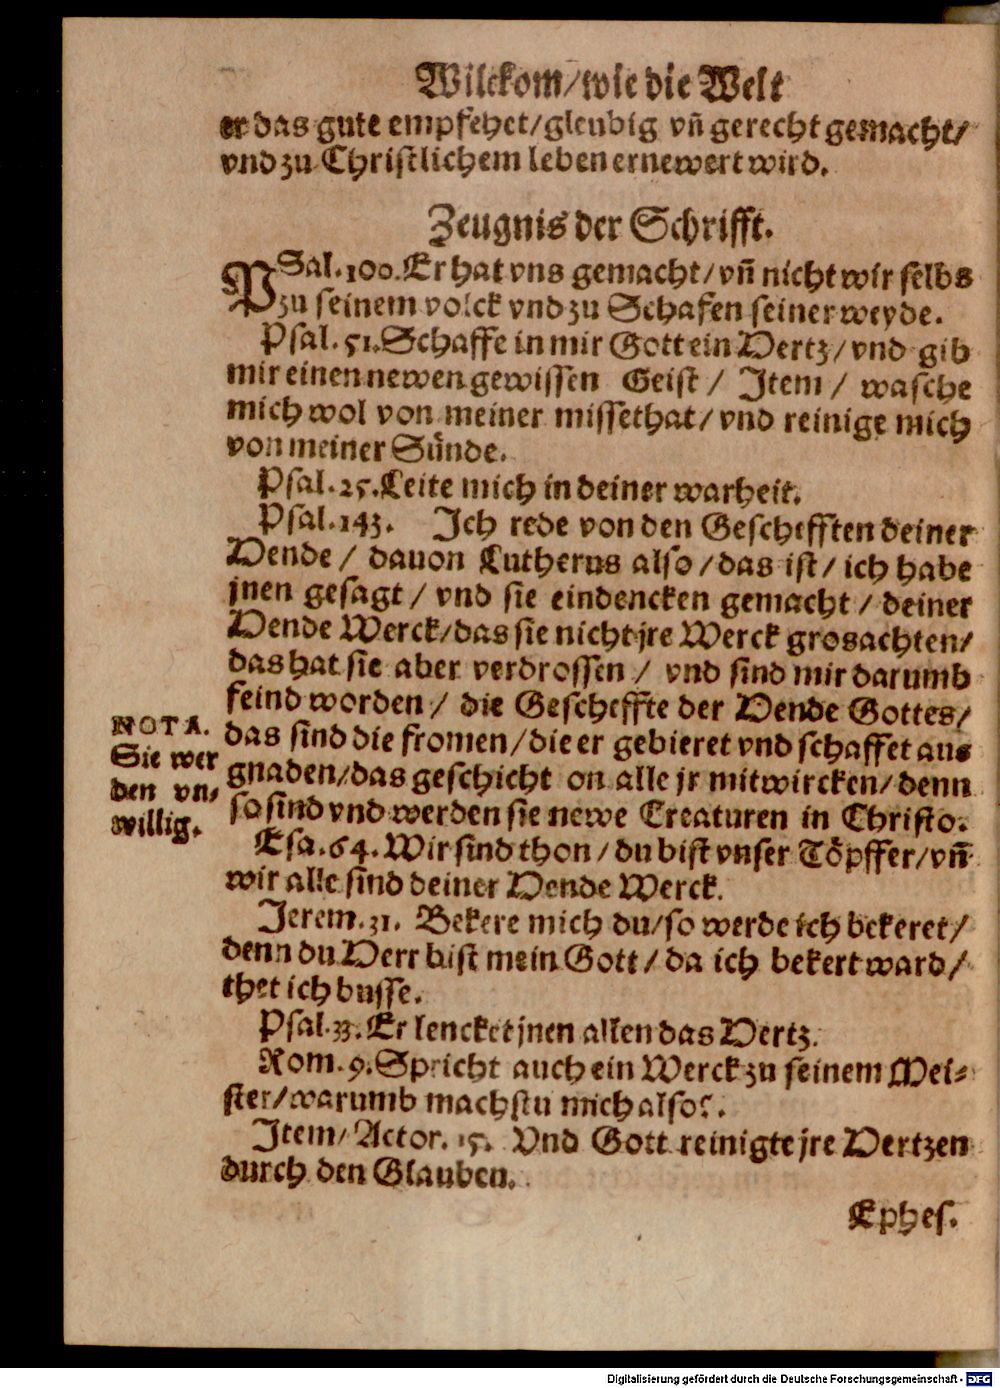 Wilckom/wie die Welt
er das gute empfehet/gleubig vñ gerecht gemacht/
vnd zu Christlichem leben ernewert wird.
Zeugnis der Schrifft.
PSal. 100. Er hat vns gemacht/vñ nicht wir selbs
zu seinem volck vnd zu Schafen seiner weyde.
Psal. 51. Schaffe in mir Gott ein Hertz/vnd gib
mir einen newen gewissen Geist / Item / wasche
mich wol von meiner missethat/vnd reinige mich
von meiner Sünde.
Psal. 25. Leite mich in deiner warheit.
Psal. 143. Ich rede von den Geschefften deiner
Hende / dauon Lutherus also/das ist/ich habe
jnen gesagt / vnd sie eindencken gemacht / deiner
Hende Werck/das sie nicht jre Werck grosachten/
das hat sie aber verdrossen / vnd sind mir darumb
feind worden / die Gescheffte der Hende Gottes/
das sind die fromen/die er gebieret vnd schaffet aus
gnaden/das geschicht on alle jr mitwircken/denn
so sind vnd werden sie newe Creaturen in Christo.
NOTA.
Sie wer
den vn-
willig.
Esa. 64. Wir sind thon/du bist vnser Töpffer/vñ
wir alle sind deiner Hende Werck.
Jerem. 31. Bekere mich du/so werde ich bekeret/
denn du Herr bist mein Gott/da ich bekert ward/
thet ich busse.
Psal. 33. Er lencket jnen allen das Hertz.
Rom. 9. Spricht auch ein Werck zu seinem Mei-
ster/warumb machstu mich also?.
Item/Actor. 15. Vnd Gott reinigte jre Hertzen
durch den Glauben.
Ephes.
Digitalisierung gefördert durch die Deutsche Forschungsgemeinschaft - DFG